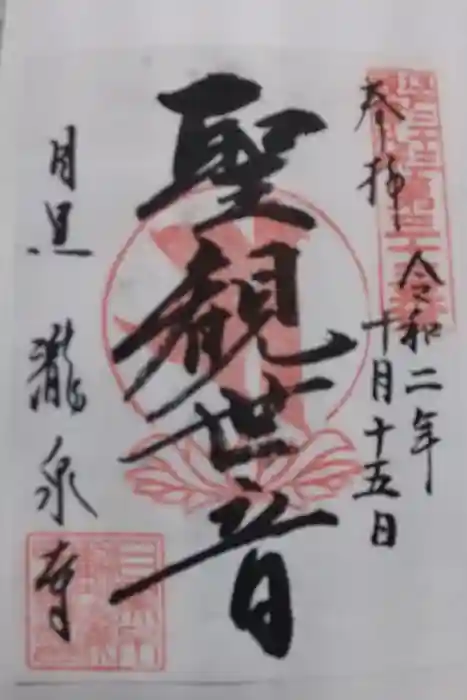 奉拝
令和二年
十月十五日
聖観世音
目足 瀧泉寺